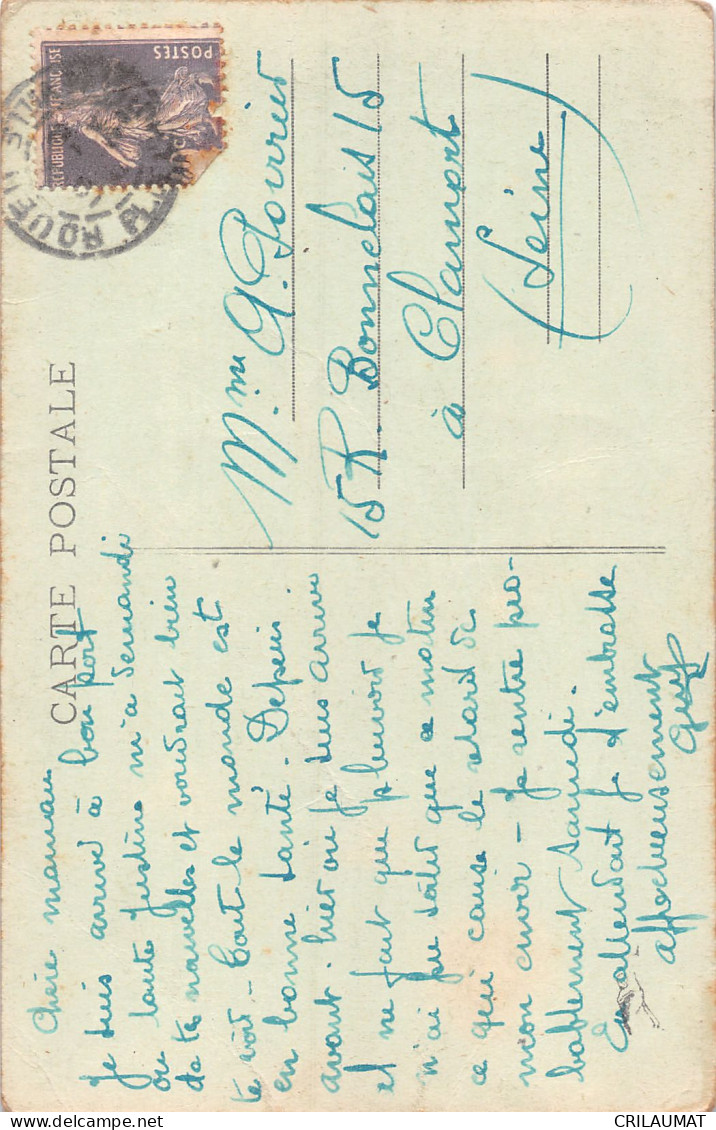 CARTE POSTALE
Chère maman
Je suis arrivé à bon port
ou tante Justine m'a demandé
de tes nouvelles et voudrait bien
te voir - Tout le monde est
en bonne santé - Depuis
avant-hier où je suis arrivé
il ne fait que pleuvoir je
n'ai pu poster que ce matin
ce qui cause le retard de
mon envoi - Je rentre pro-
bablement samedi.
En attendant je t'embrasse
affectueusement
Guy
REPUBLIQUE FRANÇAISE
POSTES
ROUEN
Mme A. Poirier
15 R. Bonnelais 15
à Clamart
(Seine)
CRILAUMAT